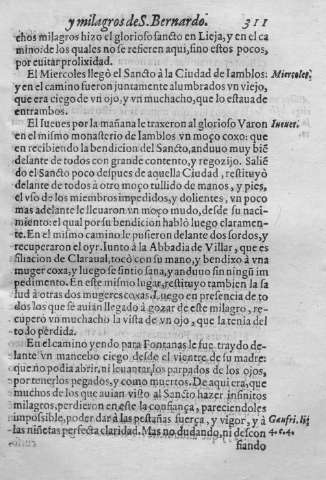 y milagros de S. Bernardo. 311
chos milagros hizo el glorioso sancto en Lieja, y en el ca
mino de los quales no se refieren aqui, sino estos pocos,
por euitar prolixidad.
El Miercoles llegò el Sancto à la Ciudad de Iamblos: Miercoles.
y en el camino fueron juntamente alumbrados vn viejo,
que era ciego de vn ojo, y vn muchacho, que lo estaua de
entrambos.
El Iueues por la mañana le traxeron al glorioso Varon Iueues.
en el mismo monasterio de Iamblos vn moço coxo: que
en recibiendo la bendicion del Sancto, anduuo muy biē
delante de todos con grande contento, y regozijo. Salič
do el Sancto poco despues de aquella Ciudad, restituyò
delante de todos à otro moço tullido de manos, y pies,
el vso de los miembros impedidos, y dolientes, vn poco
mas adelante le lleuaron vn moço mudo, desde su naci-
miento: el qual por su bendicion hablò luego claramen-
te. En el mismo camino le pusieron delante dos sordos, y
recuperaron el oyr. Iunto à la Abbadia de Villar, que es
filiacion de Claraual, tocò con su mano, y bendixo à vna
muger coxa, y luego se sintio sana, y anduuo sin ningū im
pedimento. En este mismo lugar, restituyo tambien la sa
lud à otras dos mugeres coxas. Luego en presencia de to
dos los que se auian llegado à gozar de este milagro, re-
cuperò vn muchacho la vista de vn ojo, que la tenia del
todo perdida.
En el camino yendo para Fontanas le fue traydo de-
lante vn mancebo ciego desde el vientre de su madre:
que no podia abrir, ni leuantar los parpados de los ojos,
por tenerlos pegados, y como muertos. De aqui era, que
muchos de los que auian visto al Sancto hazer infinitos
milagros, perdieron en este la confiança, pareciendoles
impossible, poder dar à las pestañas fuerça, y vigor, y à Gaufri. li
las niñetas perfecta claridad. Mas no dudando, ni descon 4. c. 4.
fiando